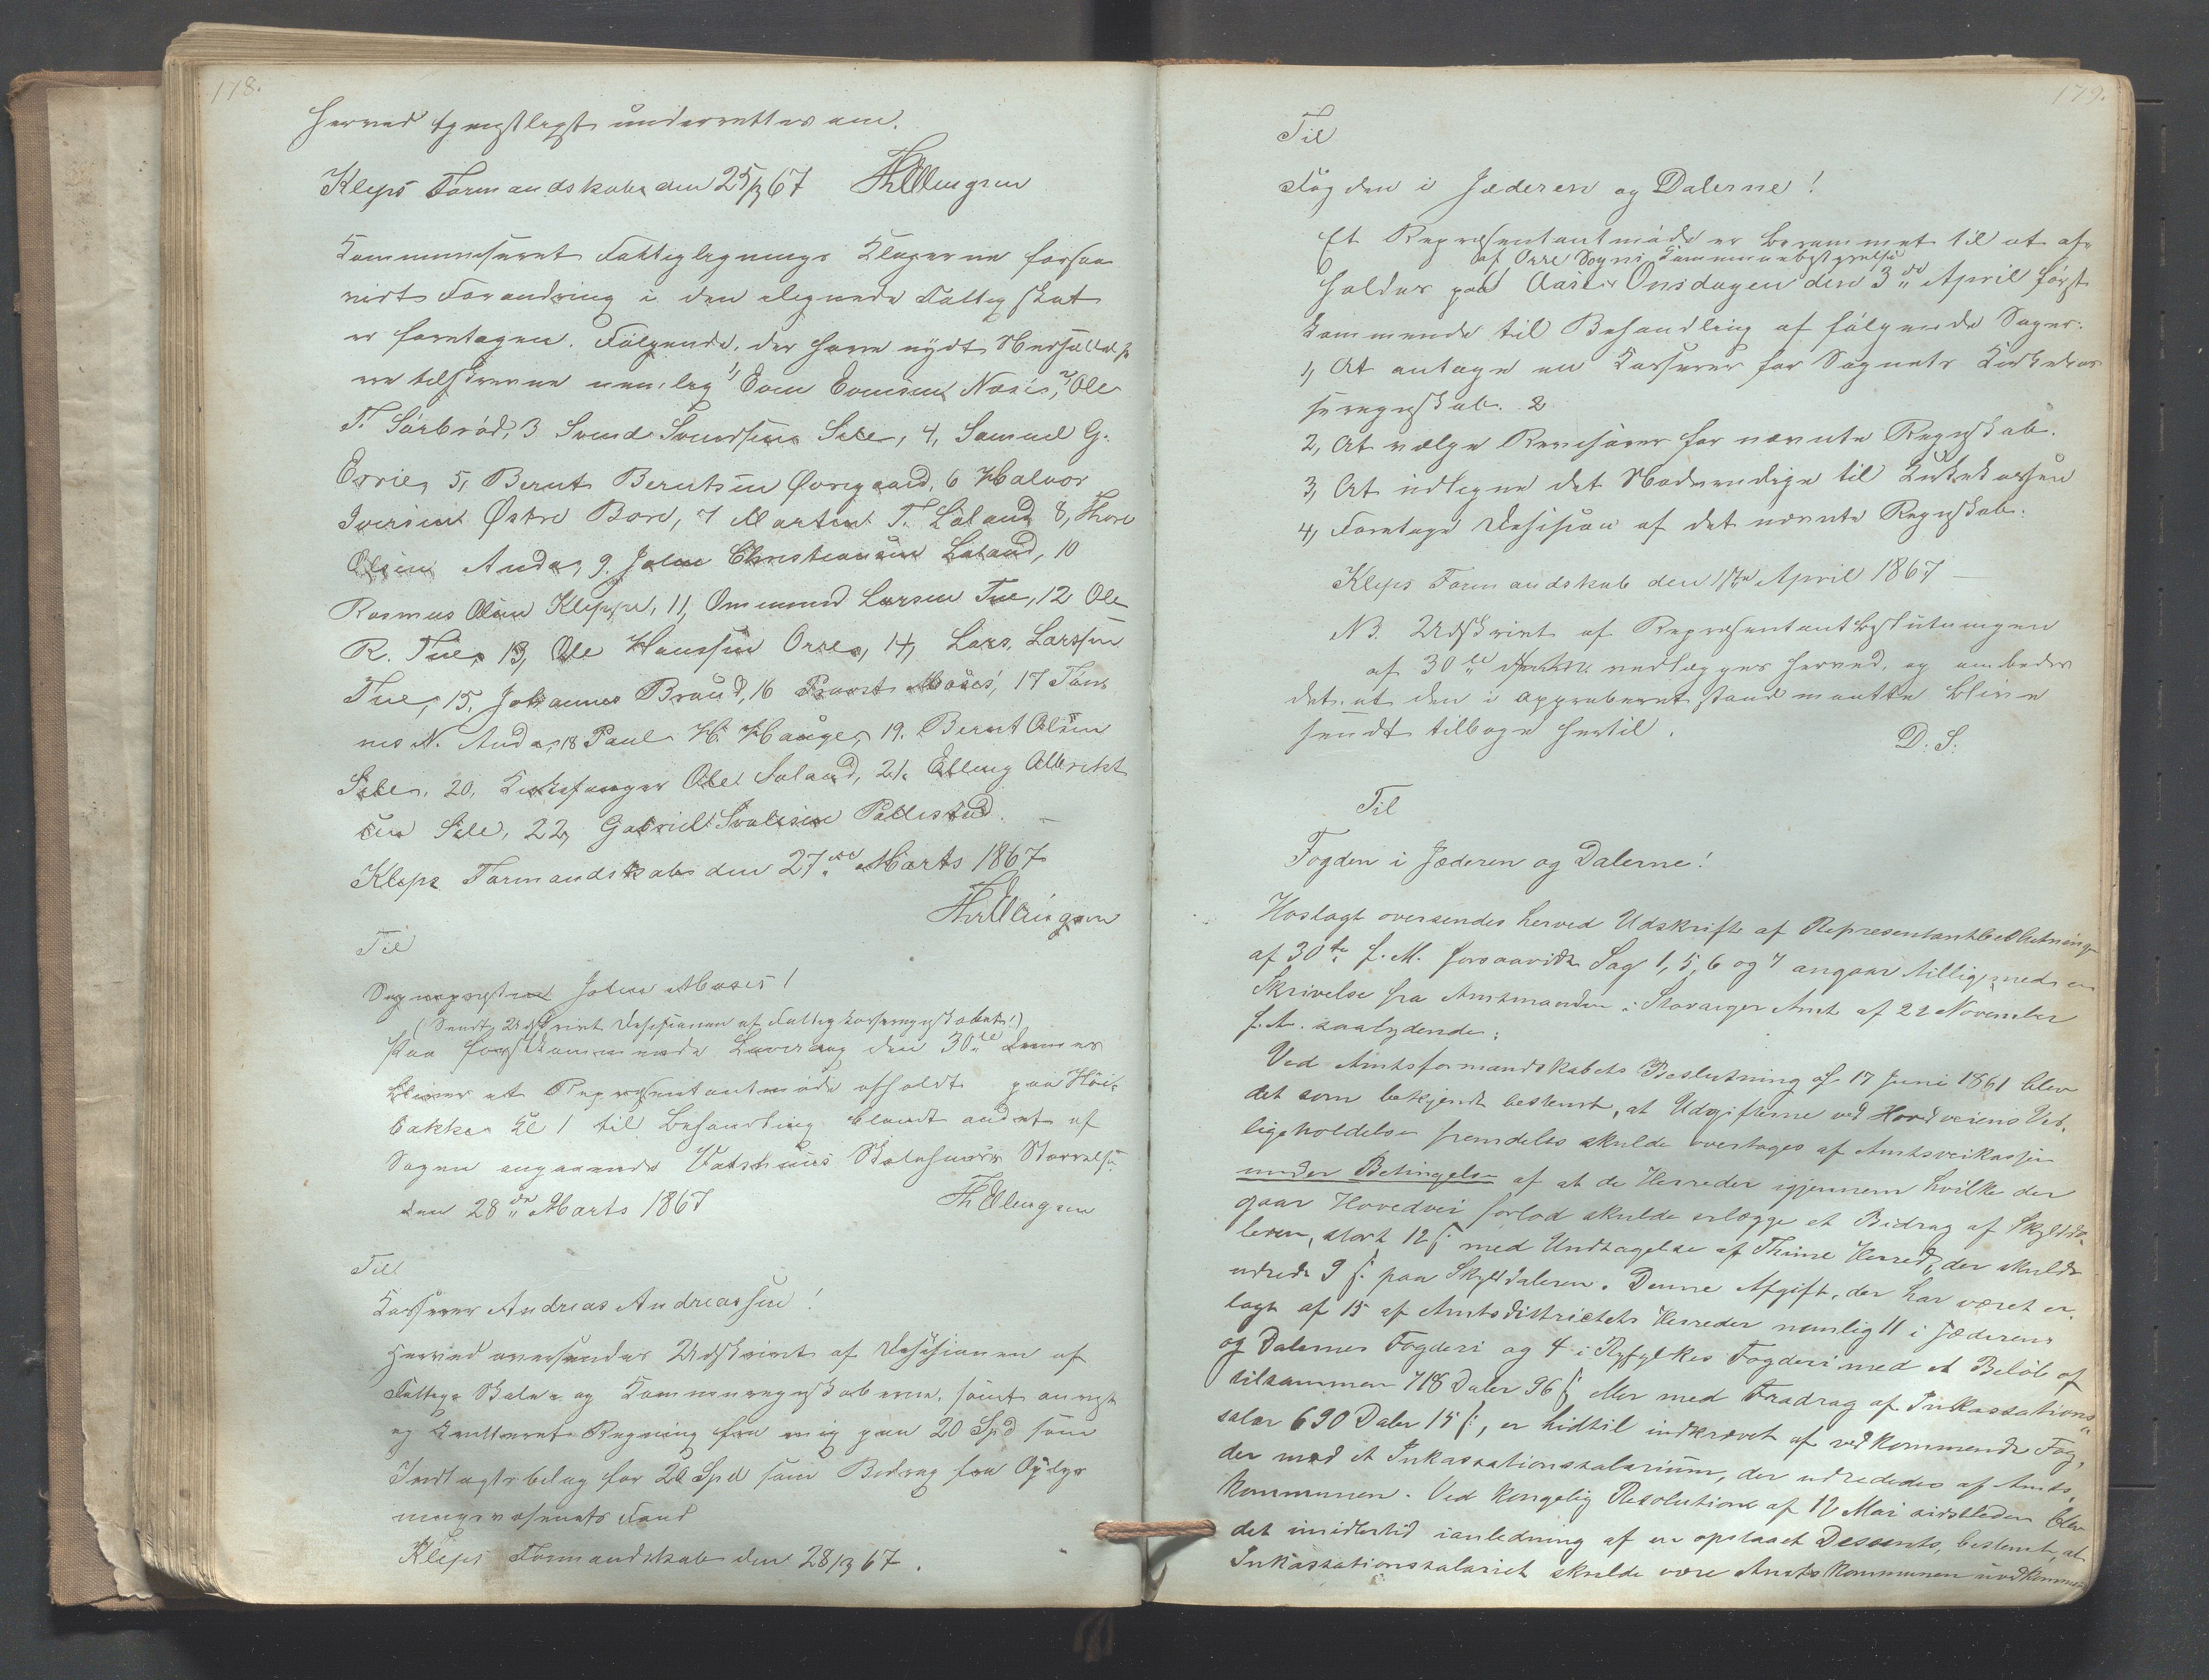 178.
herved tjenstligst underrettes om.
Kleps Formandskab den 25/3 67 Th Ellingsen
Kommuniseret Fattiglegnings Klagerne forsaa
vidt Forandring i den elegnede Fattigskat
er foretagen. Følgende, der have nydt
ere tilskrevne nemlig 1, Eom Nærei, 2, Ole
T. Sørbrød, 3 Svend Svendsen Sele, 4, Samuel G.
Errie, 5, Bernt Berntsen Øvregaard, 6 Halvor
Iversen Østre Bore, 7 Martin T. Laland 8, Thore
Olsen Anda, 9. John Christiansen Laland, 10
Rasmus Olsen Kleppe, 11, Ommund Larsen Tue, 12 Ole
R. Tue, 13, Ole Hanssen Orre, 14, Lars Larssen
Tue, 15, Johannes Braud, 16 Provst Moses, 17 Tøn
nes N. Anda, 18 Paul H. Hauge, 19. Bernt Olsen
Sele, 20, Kirkesanger Ole Laland, 21. Elling Albrekt
sen Sele, 22, Gabriel Svalesen Pollestad. —
Kleps Formandskab den 27de Marts 1867
Th Ellingsen
Til
Sogneprest John Moses!
(Sendt Udskrivt Desisionen af Fattigkasseregnskabet!)
Paa førstkommende Løverdag den 30te dennes
bliver et Representantmøde afholdt paa Høi-
bakke Kl 1 til Behandling blandt andet af
Sagen angaaende Skolehuses Størrelse
den 28de Marts 1867 Th Ellingsen
Till
Kasserer Andreas Andreassen!
Herved oversendes Udskrivt af Desisionen af
Fattig- Skole- og Kommuneregnskaberne, samt
og Kvitteret Regning fra mig paa 20 Spd som
Indtægtsbelag for 20 Spd som Bidrag fra Oplys
ningsvæsenets Fond
Kleps Formandskab den 28/3 67.
179.
Til
Fogden i Jæderen og Dalerne!
Et Representantmøde er berammet til at af-
af Orre Sogns Kommunebestyrelse
holdes paa Aase Onsdagen den 3de April først
kommende til Behandling af følgende Sager:
1, At antage en Kasserer for Sognets Kirkekas
seregnskab. 2
2, At vælge Revisorer for nævnte Regnskab.
3, At udlegne det Nødvendige til Kirkekassen
4, Foretage Desision af det nævnte Regnskab.
Kleps Formandskab den 1ste April 1867 —
NB. Udskrivt af Representantbeslutningen
af 30te vedlægges herved, og ombedes
det, at den i approberet stand maatte blive
sendt tilbage hertil.
D. S.
Til
Fogden i Jæderen og Dalerne!
Hoslagt oversendes herved Udskrifte af Representantbeslutninge
af 30te f. M. forsaavidt Sag 1, 5, 6 og 7 angaar tilligemed en
Skrivelse fra Amtmanden i Stavanger Amt af 22 November
f. A. saalydende:
Ved Amtsformandskabets Beslutning af 17 Juni 1861 blev
det som bekjendt bestemt, at Udgifterne ved Hovedveiens Ved.
ligeholdelse fremdeles skulde overtages af Amtsveikassen
under Betingelse af at de Herreder igjennem hvilke der
gaar Hovedvei forlod skulde erlægge et Bidrag af Skyldda-
leren, stort 12 ſ: med Undtagelse af Thime Herred, der skulde
udrede 9 ſ: paa Skylddaleren. Denne Afgift, der har været er
lagt af 15 af Amtsdistrictets Herreder nemlig 11 i Jæderens
og Dalernes Fogderi og 4 i Ryfylkes Fogderi med et Beløb af
tilsammen 718 Daler 96 ſ eller med Fradrag af Inkassations
salær 690 Daler 15 ſ:, er hidtil indkrævet af vedkommende Fog,
der mod et Inkassationssalarium, der udrededes af Amts,
kommunen. Ved kongelig Resolution af 12 Mai sidstleden blev
det imidlertid ianledning af en opstaaet Dessents, bestemt, at
Inkassationssalariet skulde være Amtskommunen uvedkommen